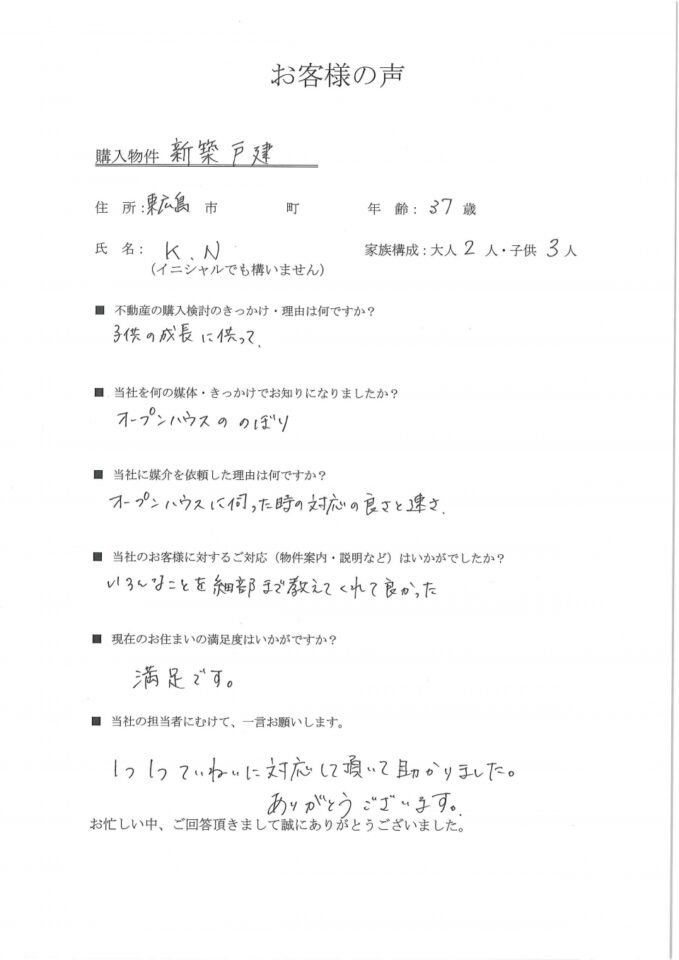 お客様の声
購入物件 新築戸建
住 所：東広島 市 町 年 齢：37 歳
氏 名： K.N 家族構成：大人 2 人・子供 3 人
（イニシャルでも構いません）
■ 不動産の購入検討のきっかけ・理由は何ですか？
子供の成長に供って.
■ 当社を何の媒体・きっかけでお知りになりましたか？
オープンハウスの のぼり
■ 当社に媒介を依頼した理由は何ですか？
オープンハウスに伺った時の対応の良さと速さ.
■ 当社のお客様に対するご対応（物件案内・説明など）はいかがでしたか？
いろんなことを細部まで教えてくれて良かった
■ 現在のお住まいの満足度はいかがですか？
満足です。
■ 当社の担当者にむけて、一言お願いします。
1つ1つていねいに対応して頂いて助かりました。
ありがとうございます。
お忙しい中、ご回答頂きまして誠にありがとうございました。